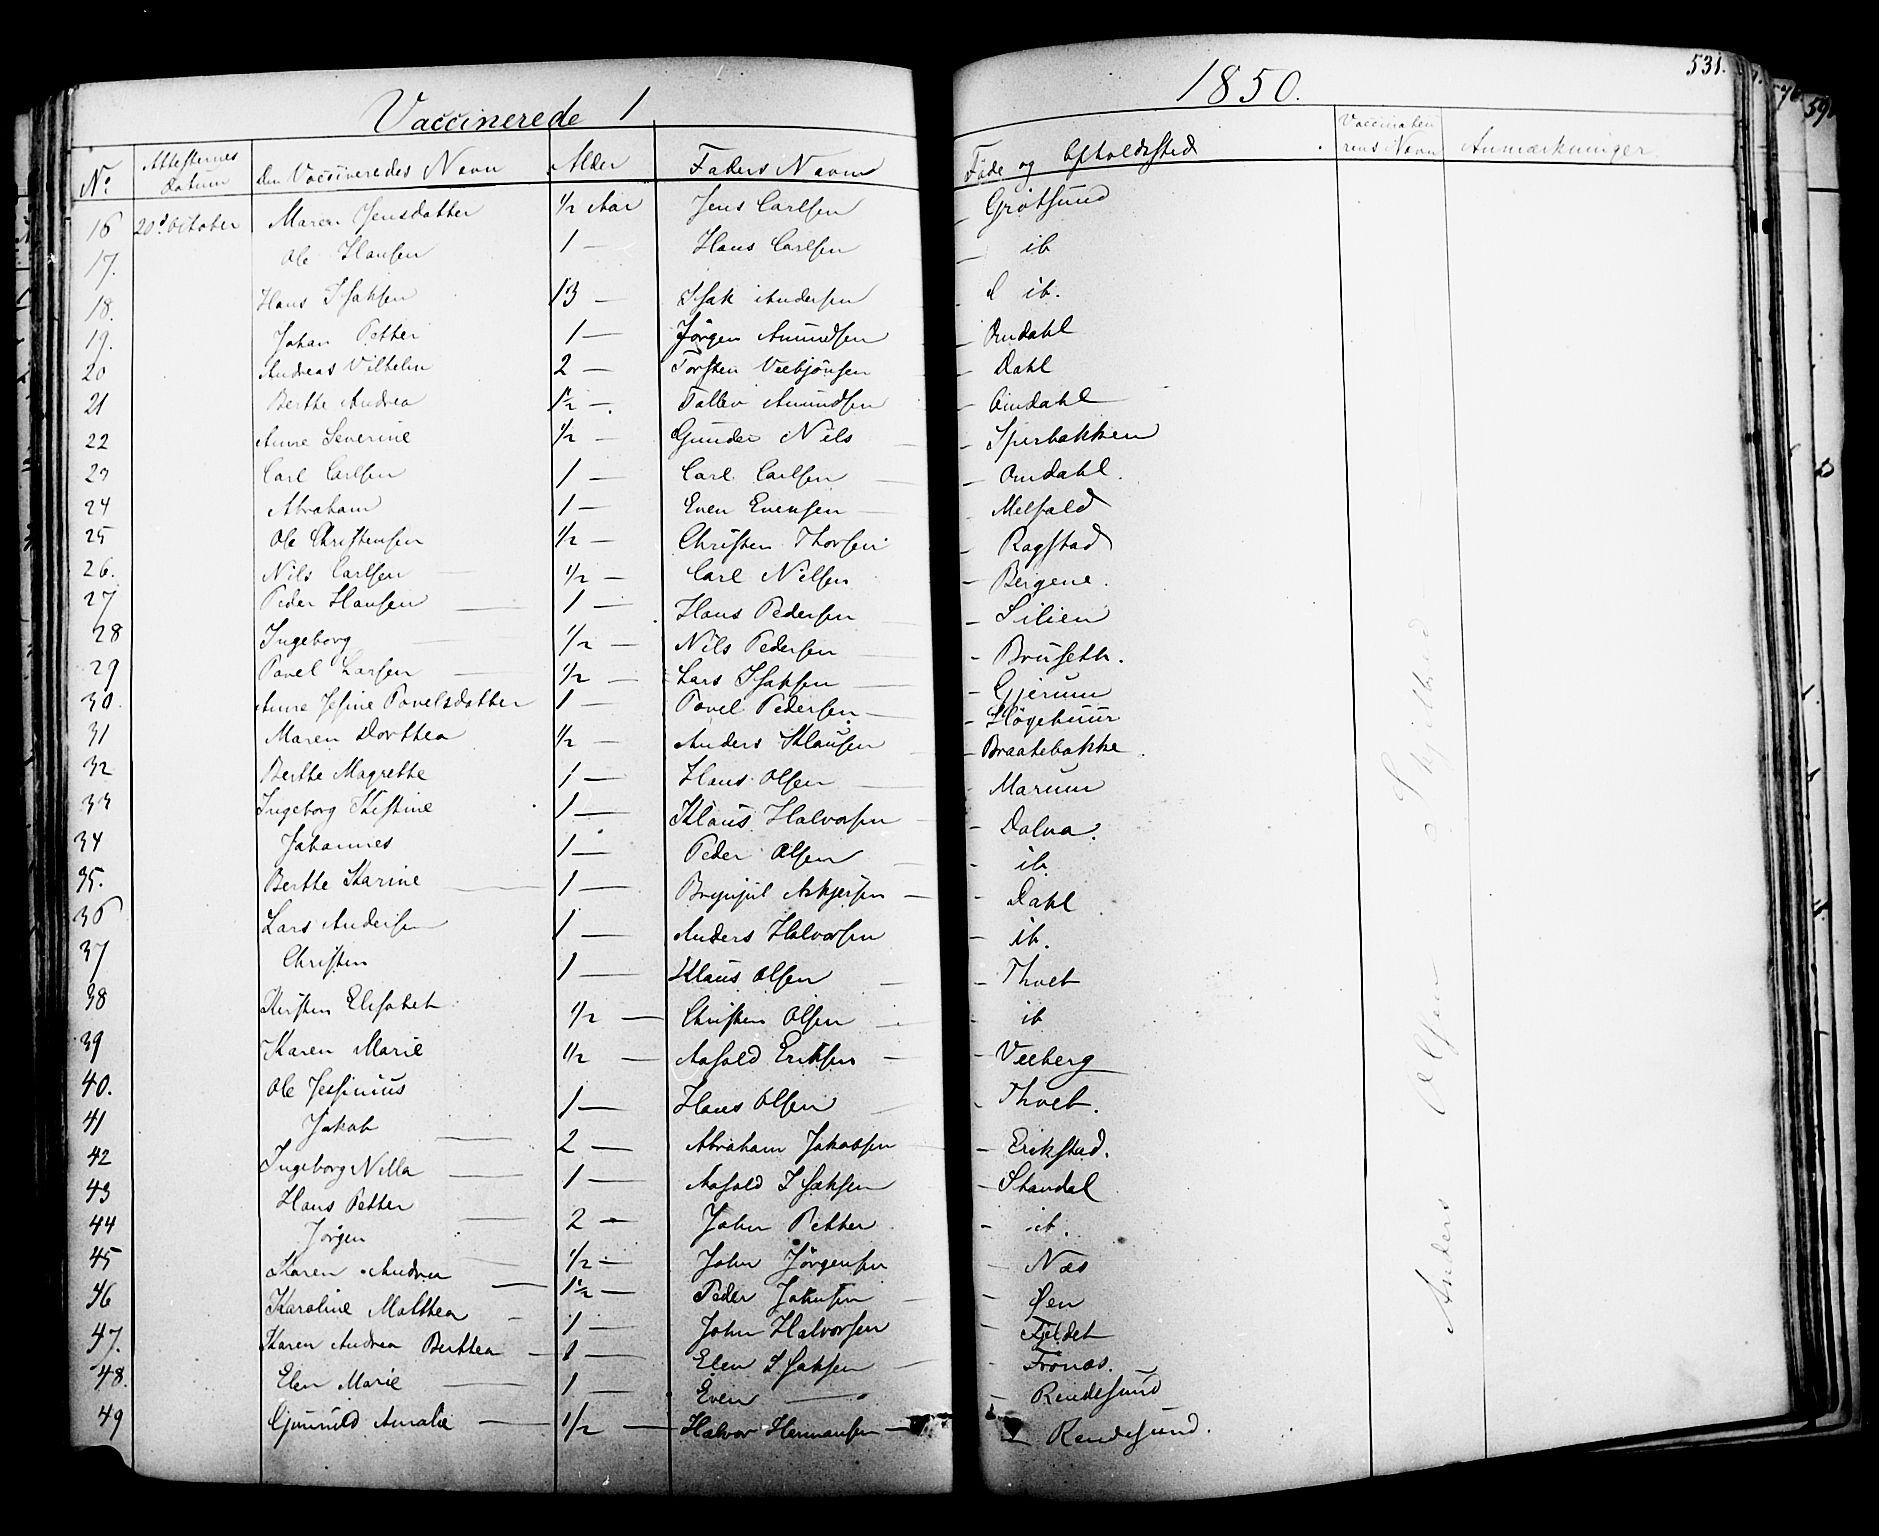 Vaccinerede 1 1850. 531.
No Attesternes Datum den Vaccineredes Navn Alder Faders Navn Føde og Opholdssted Vaccinateurens Navn Anmærkninger
16 20d October Maren Jensdatter 1/2 Aar Jens Carlsen - Grøtsund
17. Ole Hansen 1 - Hans Carlsen - ib
18. Hans Isaksen 13 - Isak Andersen - ib.
19. Johan Petter 1 - Jørgen Amundsen - Omdahl
20 Andreas Vilhelm 2 - Torsten Veebjønsen - Dahl
21 Berthe Andrea 1½ - Tallev Amundsen - Omdahl
22 Anne Severine 1/2 - Gunder Nils - Spirbakken
23 Carl Carlsen 1 - Carl Carlsen - Omdahl.
24 Abraham 1 - Even Evensen - Melfald
25 Ole Christensen 1/2 - Christen Thorsen - Ragstad
26. Nils Carlsen 1/2 - Carl Nilsen - Bergene.
27 Peder Hansen 1 - Hans Pedersen - Silien
28 Ingeborg 1/2 - Nils Pedersen - Bruseth.
29 Povel Larsen 1/2 - Lars Isaksen - Gjerum
30. Anne Jesine Povelsdatter 1 - Povel Pedersen - Høgebuur
31 Maren Dorthea 1/2 - Anders Klausen - Braatebakke.
32 Berthe Magrethe 1 - Hans Olsen - Marum
33 Ingeborg Kistine 1 - Klaus Halvorsen - Dalva.
34 Johannes 1 - Peder Olsen - ib.
35. Berthe Karine 1 - Brynjul Askjersen - Dahl
36 Lars Andersen 1 - Anders Halvorsen - ib.
37 Christen 1 - Klaus Olsen - Thvet
38 Kirsten Elisabet 1/2 - Christen Olsen - ib
39 Karen Marie 1/2 - Aasold Eriksen - Veeberg
40. Ole Jessinius 1 - Hans Olsen - Thvet.
41 Jakob 2 - Abraham Jakobsen - Erikstad.
42 Ingeborg Nilla 1 - Aasold Isaksen - Standal
43 Hans Petter 2 - John Petter - ib.
44 Jørgen 1/2 - John Jørgensen - Næs
45 Karen Andrea 1½ - Peder Jakobsen - Øen
46 Karoline Malthea 1 - John Halvorsen - Feldet
47. Karen Andrea Berthea 1 - Elen Isaksen - Frønæs.
48. Elen Marie 1 - Even - Rendesund
49 Gunnild Amalie 1/2 - Halvor Hermansen - Rendesund.
Anders Olsen Skjelbred